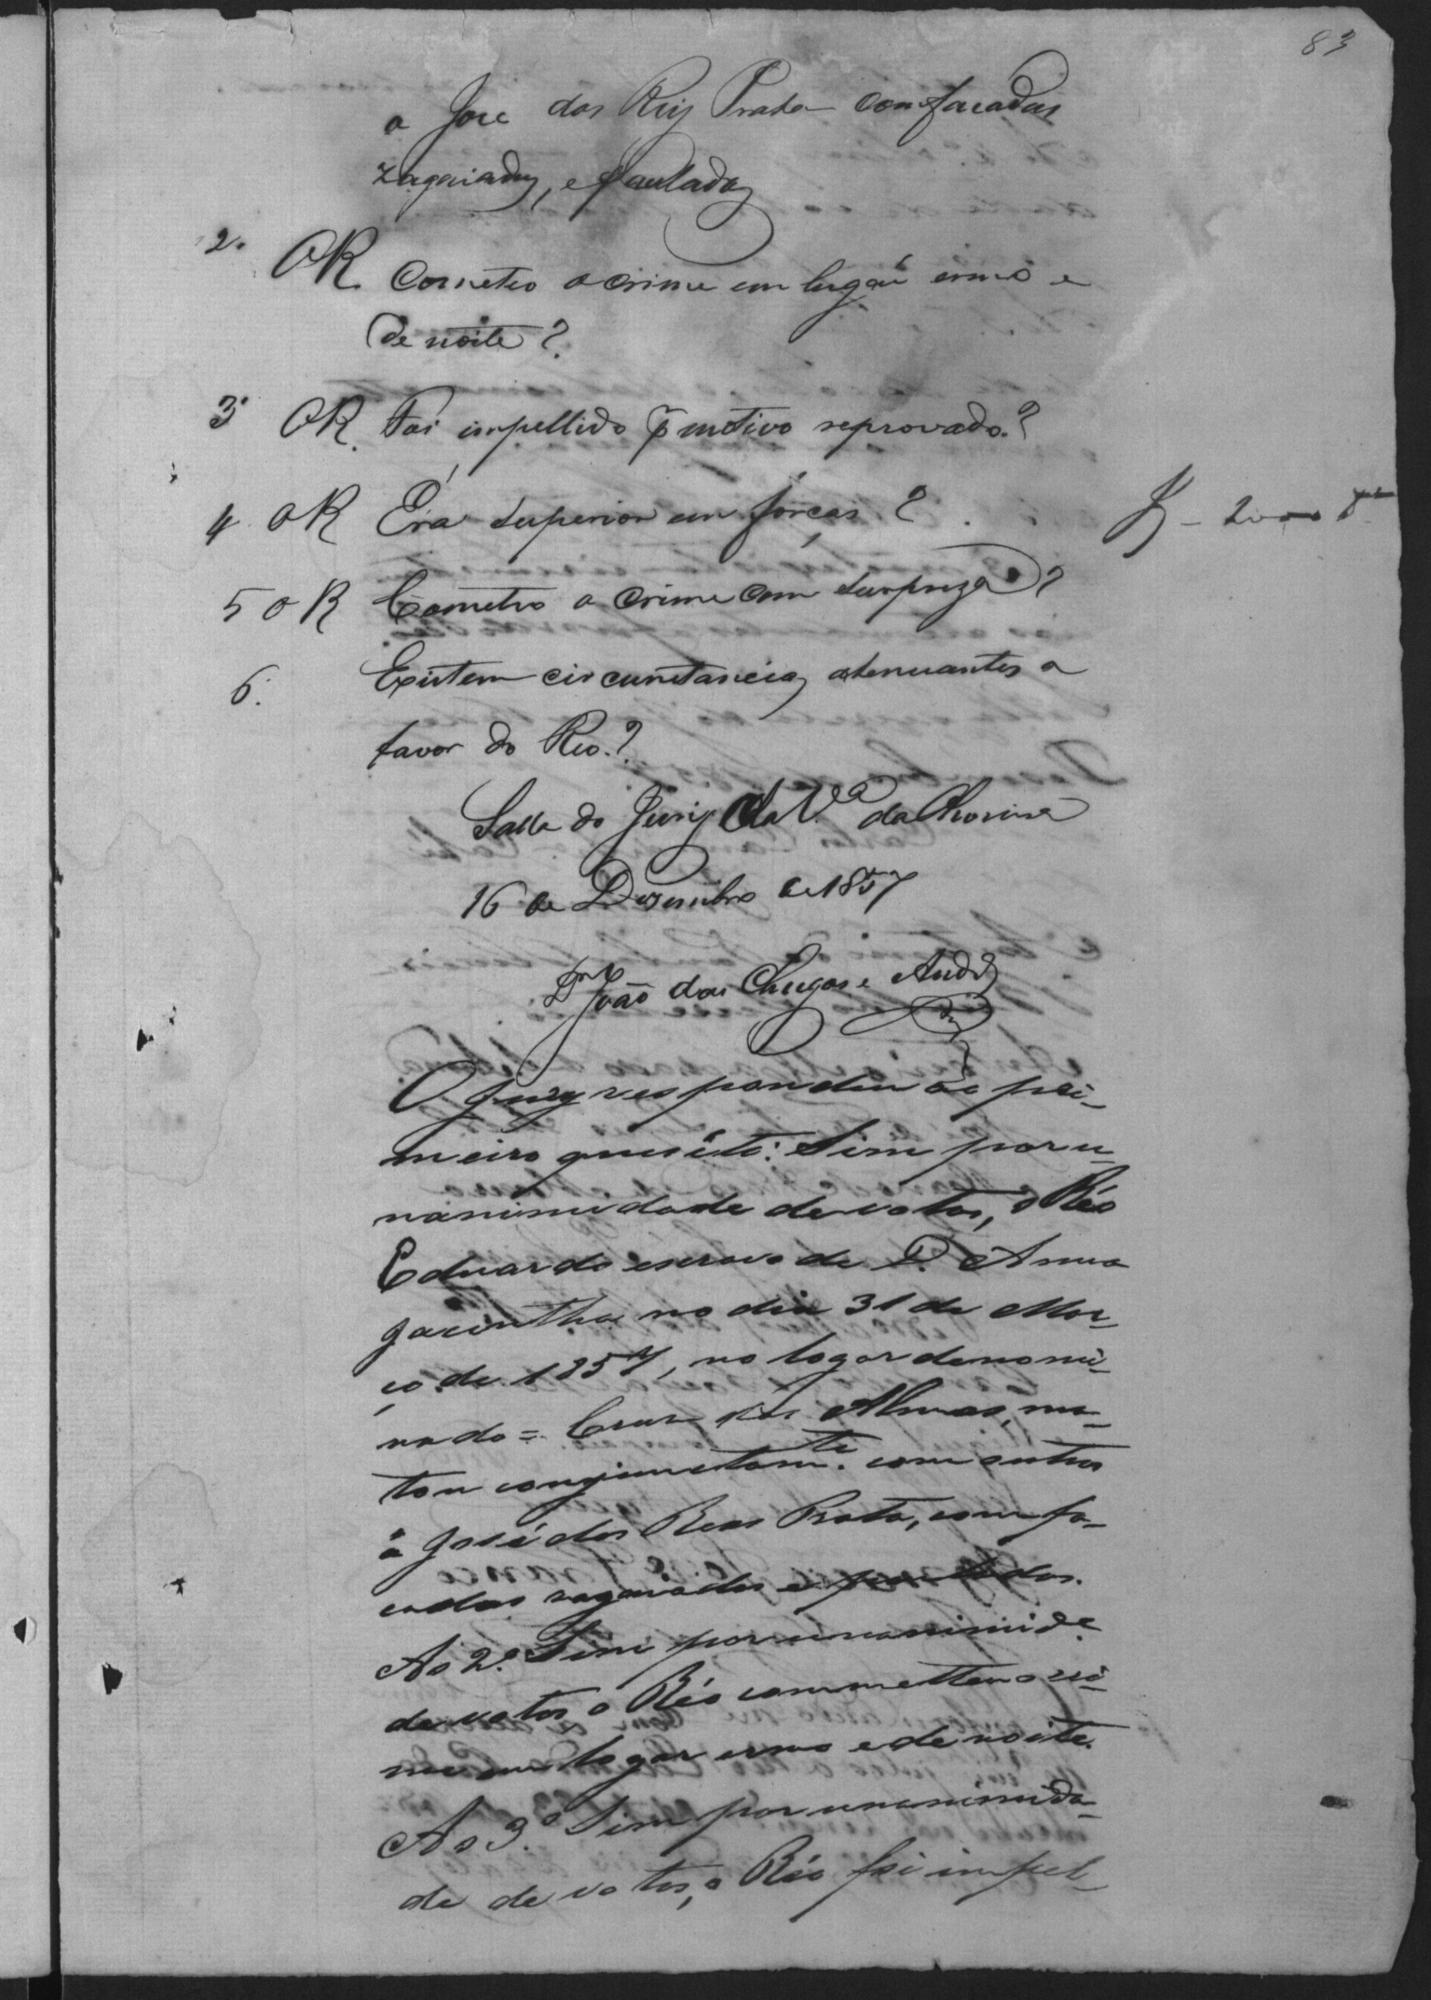 83
a José dos Reis Prata com facadas
zagaiadas, e pauladas
2.º O R. Cometeo o crime em lugar ermo e
de noite?
3.º O R. Foi impellido p motivo reprovado?
4 O R Era superior em forças?
5 O R Cometeo o crime com surpreza?
6.º Existem circunstancias atenuantes a
favor do Reo?
Salla do Jury da V.ª da
16 de Dezembro de 1857
Dr João das Chagas e Andr.
O Jury respondeu ao pri-
meiro quesito: Sim por u-
nanimidade de votos, o Réo
Eduardo escravo de D. Anna
Jacintha no dia 31 de Mar-
ço de 1857, no logar denomi-
nado = Cruz das Almas, ma-
tou conjunctam.te com outros
a José dos Reis Prata, com fa-
cadas zagaiadas e pauladas.
Ao 2.º Sim por unanimid.e
de votos o Réo commetteu o cri-
me em logar ermo e de noite.
Ao 3.º Sim por unanimida-
de de votos, o Réo foi impel-